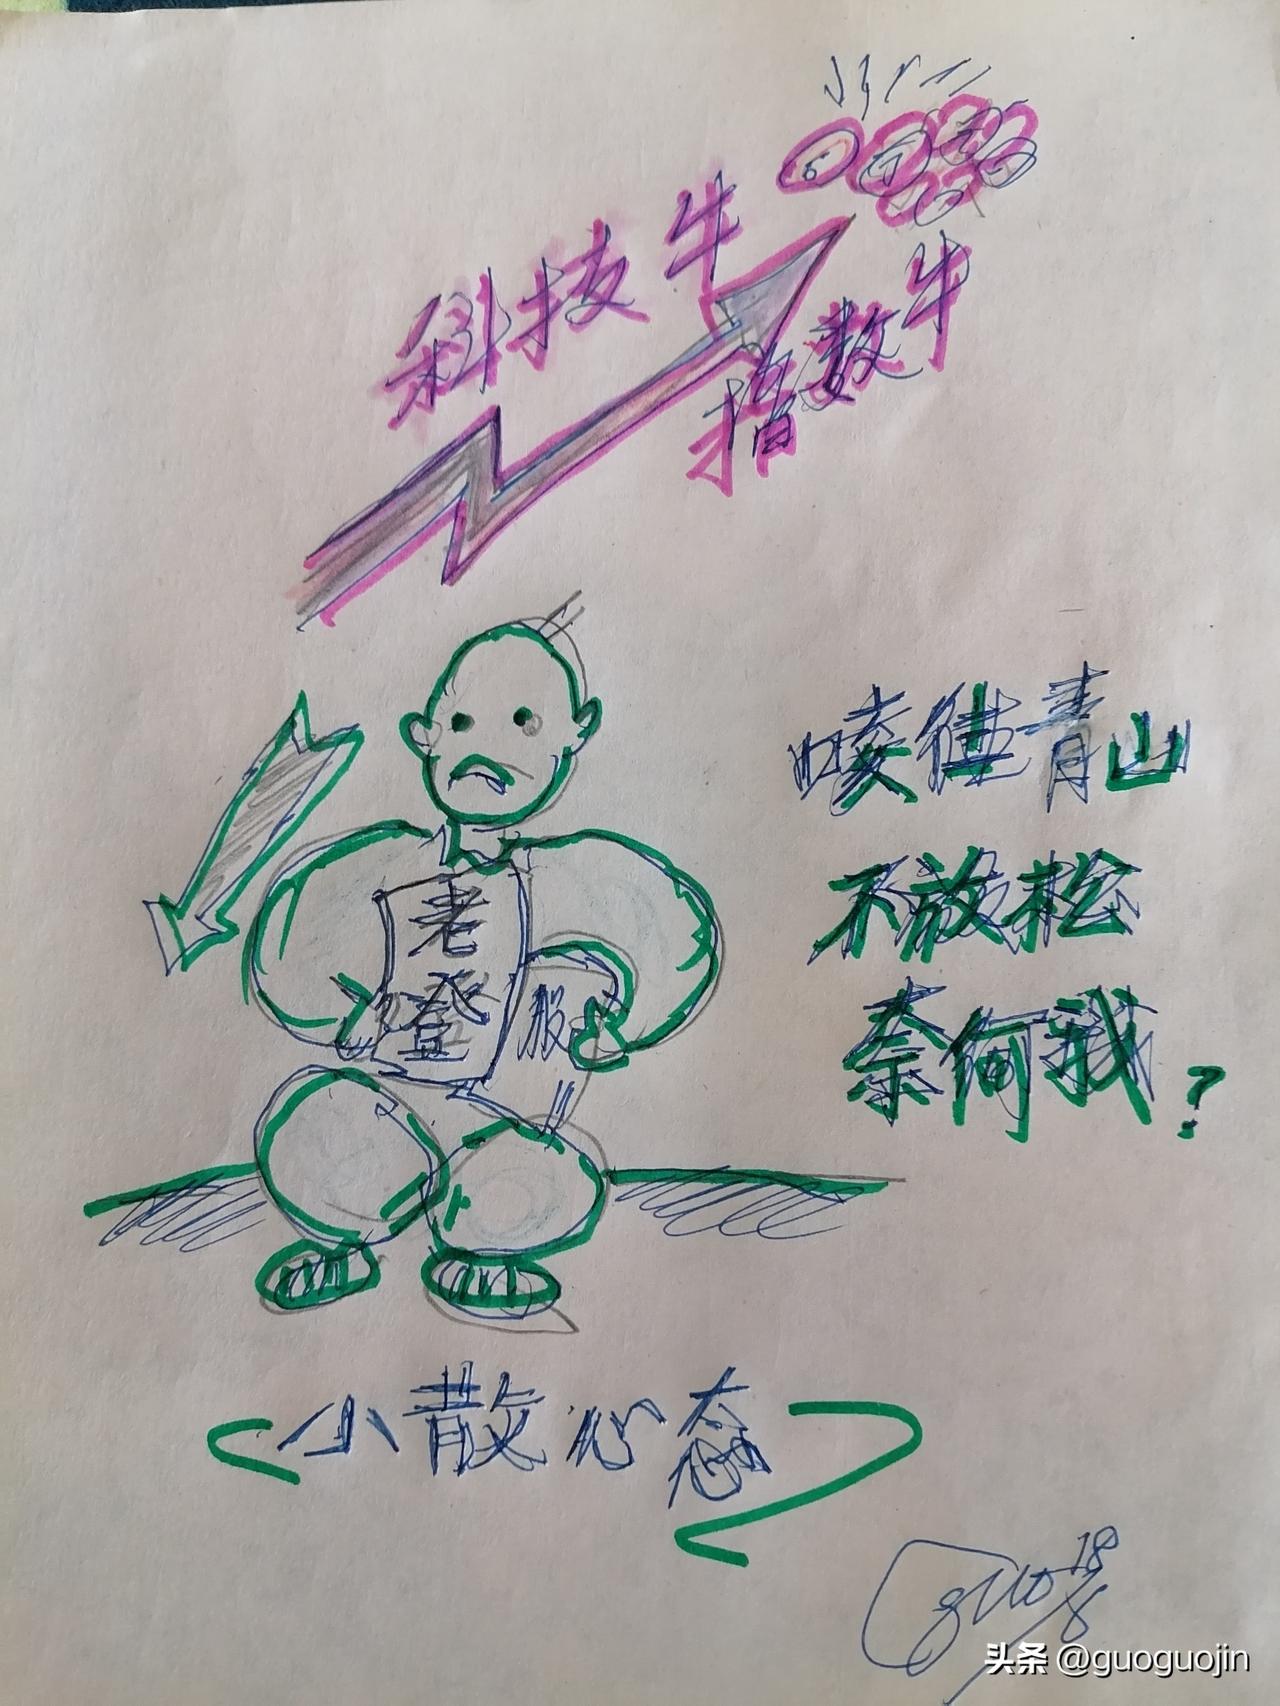 科技牛
指数牛
老登
股
唛住青山
不放松
奈何我?
小散心态
guo 18/8
头条 @guoguojin